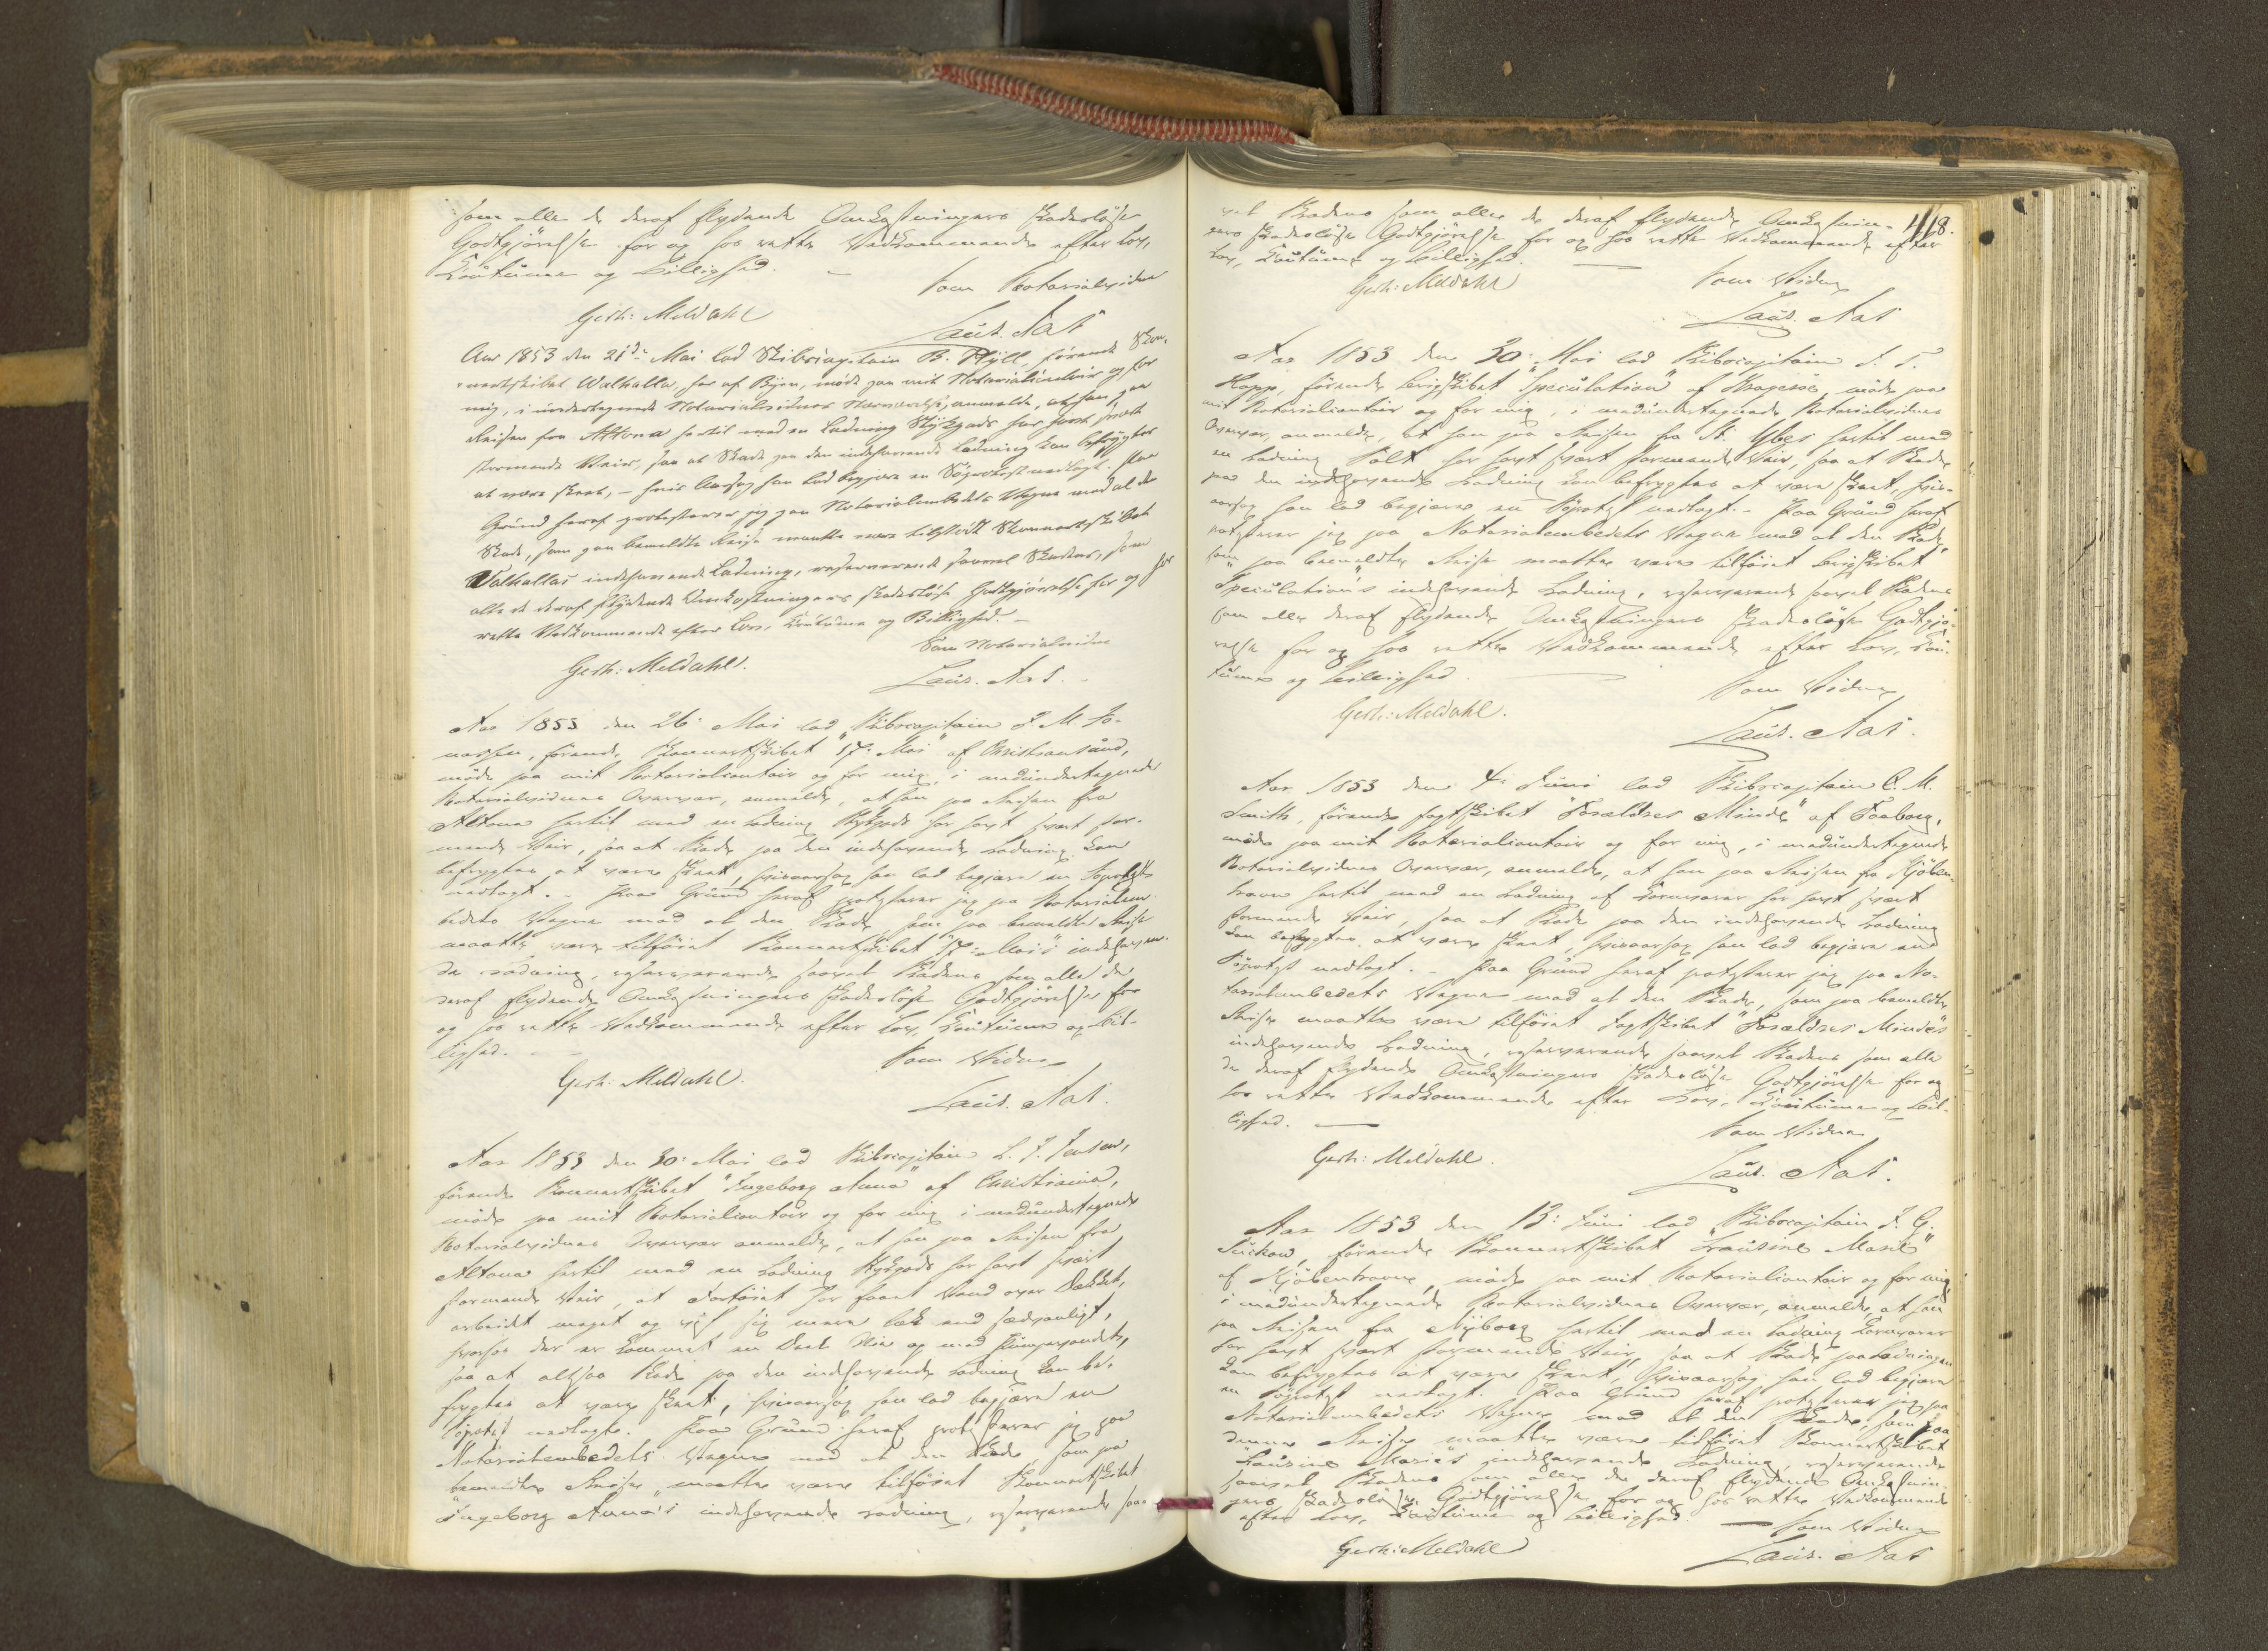 som alle de deraf flydende Omkostningers skadesløse
Godtgjørelse for og hos rette Vedkommende efter Lov,
Coutume og Billighed. —
Som Notarialvidne
Gerh: Meldahl
Laur. Aas
Aar 1853 den 21de Mai lod Skibscapitain B. Hyll, førende Skon-
nertskibet Walhalla, her af Byen, møde paa mit Notarialcontoir og for
mig, i undertegnede Notarialvidnes Nærværelse, anmelde, at han paa
Reisen fra Altona hertil med en Ladning Stykgods har havt svært
stormende Veir, saa at Skade paa den indehavende Ladning kan befrygtes
at være skeet, – hvis Aarsag han lod begjære en Søprotest nedlagt. Paa
Grund heraf protesterer jeg paa Notarialembedets Vegne mod al den
Skade, som paa bemeldte Reise maatte være tilføiet Skonnertskibet
Valhallas indehavende Ladning, reserverende saavel Skadens, som
alle de deraf flydende Omkostningers skadesløse Godtgjørelse for og hos
rette Vedkommende efter Lov, Coutume og Billighed. –
Som Notarialvidne
Gerh: Meldahl.
Laur. Aas. –
Aar 1853 den 26: Mai lod Skibscapitain J. M. Jo-
nassen, førende Skonnertskibet "17: Mai" af Christiansund,
møde paa mit Notarialcontoir og for mig, i medundertegnede
Notarialvidnes Overvær, anmelde, at han paa Reisen fra
Altona hertil med en Ladning Stykgods har havt svært stor-
mende Veir, saa at Skade paa den indehavende Ladning kan
befrygtes at være skeet, hvisaarsag han lod begjære en Søprotest
nedlagt. – Paa Grund heraf protesterer jeg paa Notarialem-
bedets Vegne mod al den Skade, som paa bemeldte Reise
maatte være tilføiet Skonnertskibet "17: Mai's" indehaven-
de Ladning, reserverende saavel Skadens som alle de
deraf flydende Omkostningers skadesløse Godtgjørelse for
og hos rette Vedkommende efter Lov, Coutume og Bil-
lighed. –
Som Vidne
Gerh: Meldahl.
Laur. Aas.
Aar 1853 den 30: Mai lod Skibscapitain L. J. Jensen,
førende Skonnertskibet "Ingeborg Anna" af Christiania,
møde paa mit Notarialcontoir og for mig i medundertegnede
Notarialvidnes Overvær anmelde, at han paa Reisen fra
Altona hertil med en Ladning Stykgods har havt svært
stormende Veir, at Fartøiet har faaet Vand over Dækket,
arbeidet meget og viist sig mere læk end sædvanligt,
hvorfor der er kommet en Deel op med Pumpevandet,
saa at altsaa Skade paa den indehavende Ladning kan be-
frygtes at være skeet, hvisaarsag han lod begjære en
Søprotest nedlagt. Paa Grund heraf protesterer jeg paa
Notarialembedets Vegne mod al den Skade som paa
bemeldte Reise maatte være tilføiet Skonnertskibet
"Ingeborg Anna's indehavende Ladning, reserverende saa-
418.
vel Skadens som alle de deraf flydende Omkostnin-
gers skadesløse Godtgjørelse for og hos rette Vedkommende efter
Lov, Coutume og Billighed. —
Som Vidne
Gerh: Meldahl
Laur. Aas
Aar 1853 den 30: Mai lod Skibscapitain J. T.
Hopp, førende Brigskibet "Speculation" af Kragerøe, møde paa
mit Notarialcontoir og for mig i medundertegnede Notarialvidnes
Overvær, anmelde, at han paa Reisen fra St. Ybes hertil med
en Ladning Salt har havt svært stormende Veir, saa at Skade
paa den indehavende Ladning kan befrygtes at være skeet, hvis-
aarsag han lod begjære en Søprotest nedlagt. – Paa Grund heraf
protesterer jeg paa Notarialembedets Vegne mod al den Skade,
som paa bemeldte Reise maatte være tilføiet Brigskibet
"Speculation's indehavende Ladning, reserverende saavel Skadens
som alle deraf flydende Omkostningers skadesløse Godtgjø-
relse for og hos rette Vedkommende efter Lov, Cou-
tume og Billighed. —
Som Vidne
Gerh: Meldahl.
Laur. Aas.
Aar 1853 den 4: Juni lod Skibscapitain C. M.
Smith, førende Jagtskibet "Forældres Minde" af Faaborg,
møde paa mit Notarialcontoir og for mig, i medundertegnede
Notarialvidnes Overvær, anmelde, at han paa Reisen fra Kjøben-
havn hertil med en Ladning af Kornvarer har havt svært
stormende Veir, saa at Skade paa den indehavende Ladning
kan befrygtes at være skeet, hvisaarsag han lod begjære en
Søprotest nedlagt. – Paa Grund heraf protesterer jeg paa No-
tarialembedets Vegne mod al den Skade, som paa bemeldte
Reise maatte være tilføiet Jagtskibet "Forældres Minde's"
indehavende Ladning, reserverende saavel Skadens som alle
de deraf flydende Omkostningers skadesløse Godtgjørelse for og
hos rette Vedkommende efter Lov, Coutume og Bil-
lighed. —
Som Vidne
Gerh: Meldahl.
Laur. Aas.
Aar 1853 den 13: Juni lod Skibscapitain J. G.
Suckow, førende Skonnertskibet "Lausine Marie"
af Kjøbenhavn, møde paa mit Notarialcontoir og for mig,
i medundertegnede Notarialvidnes Overvær, anmelde, at han
paa Reisen fra Nyborg hertil med en Ladning Kornvarer
har havt svært stormende Veir, saa at Skade paa Ladningen
kan befrygtes at være skeet, hvisaarsag han lod begjære
en Søprotest nedlagt. Paa Grund heraf protesterer jeg paa
Notarialembedets Vegne mod al den Skade, som paa
denne Reise maatte være tilføiet Skonnertskibet
"Lausine Marie's indehavende Ladning, reserverende
saavel Skadens som alle de deraf flydende Omkostnin-
gers skadesløse Godtgjørelse for og hos rette Vedkommende
efter Lov, Coutume og Billighed. —
Som Vidne
Gerh: Meldahl
Laur. Aas